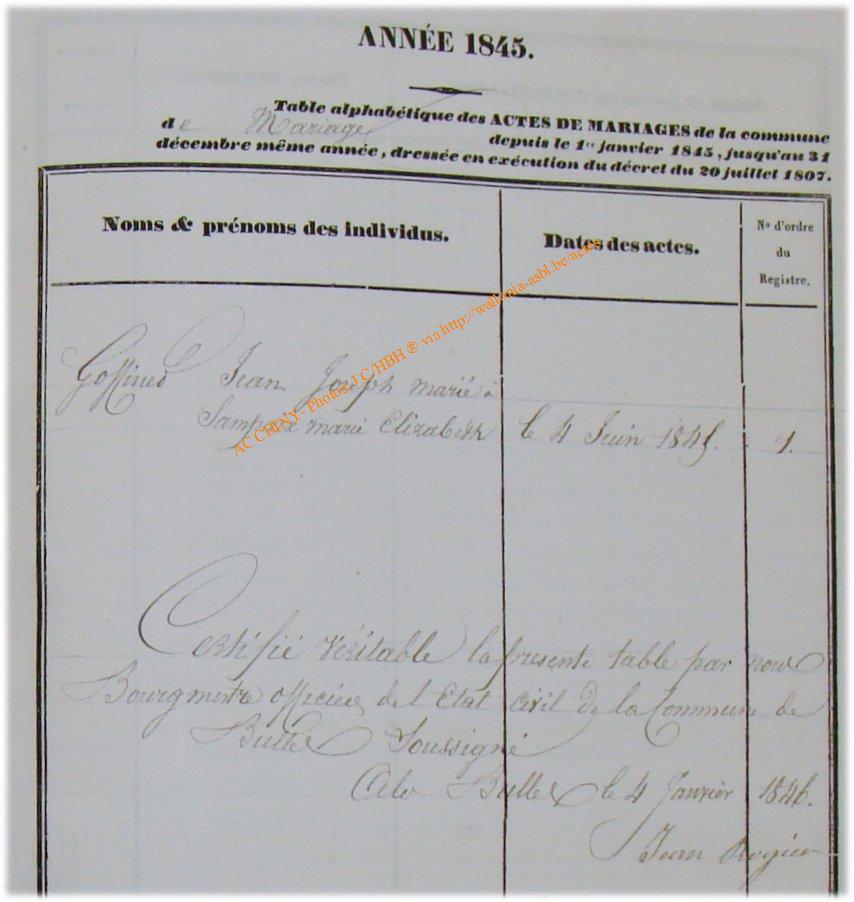 ANNÉE 1845.
Table alphabétique des ACTES DE MARIAGES de la commune
de Mariage depuis le 1er janvier 1845, jusqu'au 31
décembre même année, dressée en exécution du décret du 20 juillet 1807.
Noms & prénoms des individus.
Dates des actes.
No d'ordre
du
Registre.
Jean Joseph marié à
marie Elizabeth le 4 Juin 1845. 1.
ACCHBNY- Photos J C/HBH ® via http://wallonia-asbl.be/actes
Certifié véritable la presente table par nous
Bourgmestre officier de l Etat civil de la Commune de
Bulles Soussigné
Bulles le 4 Janvier 1846.
Jean Rogier